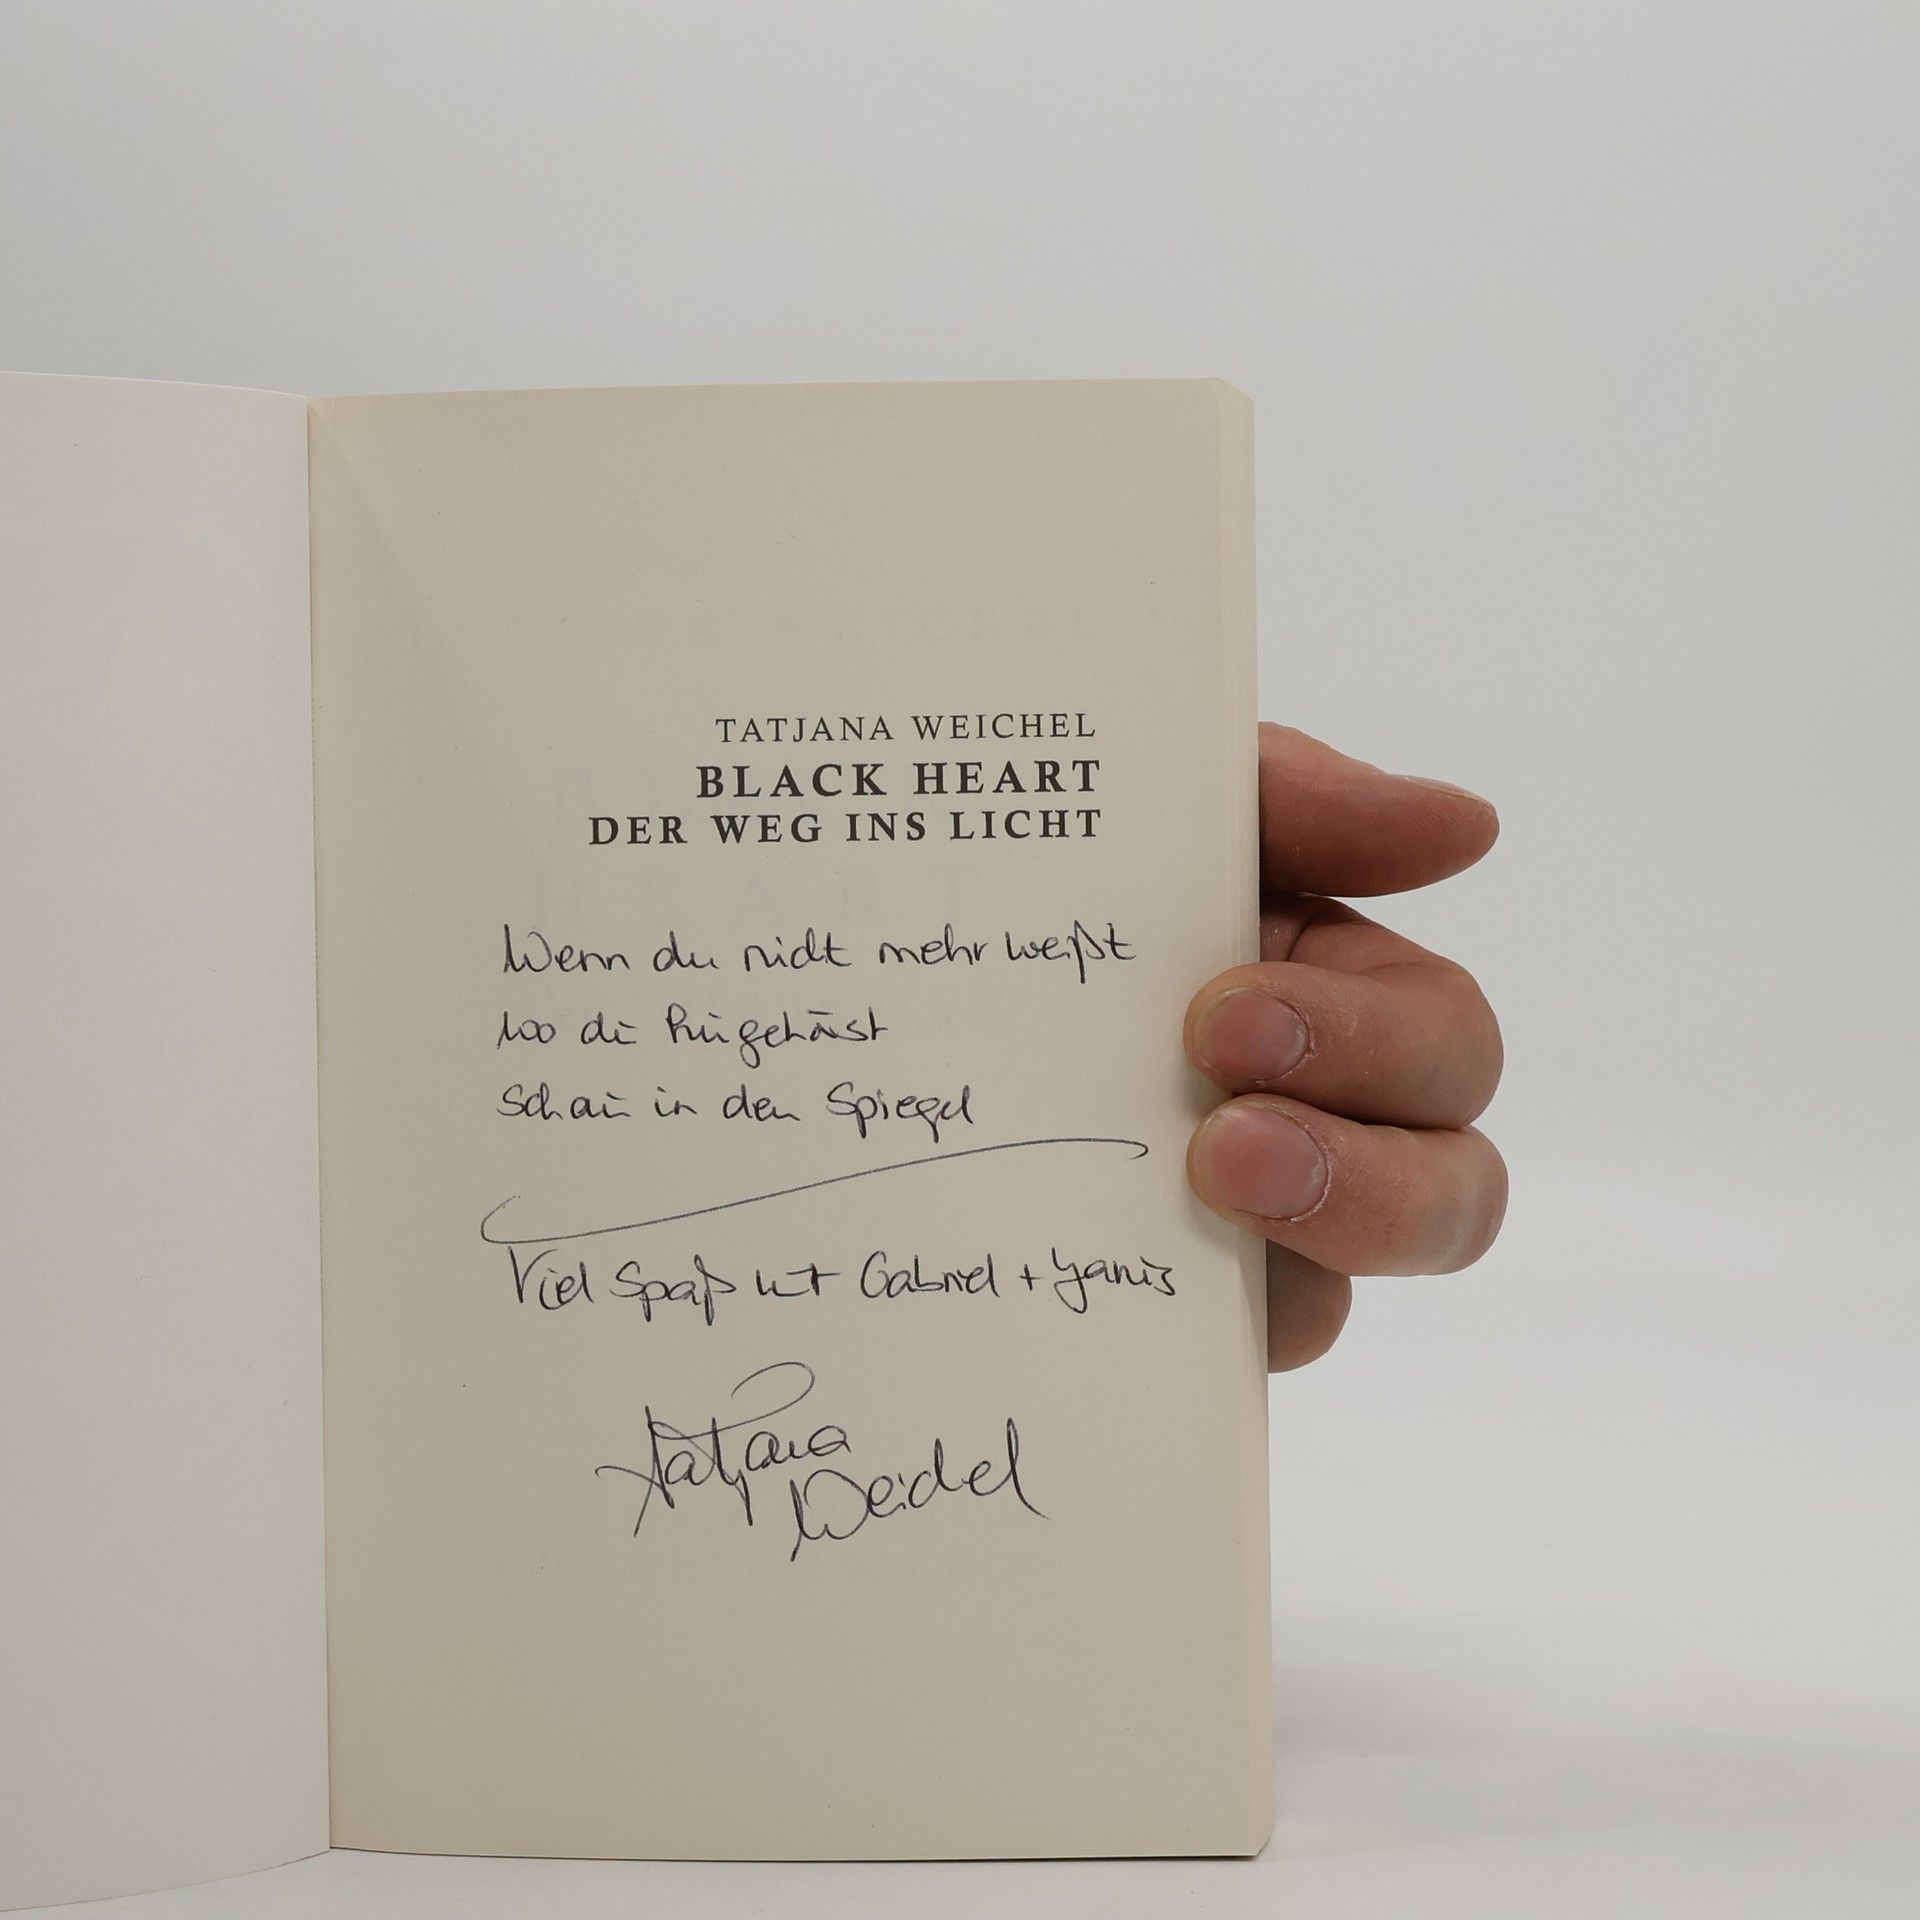 TATJANA WEICHEL
BLACK HEART
DER WEG INS LICHT
Wenn du nicht mehr weißt
wo du hingehörst
schau in den Spiegel
Viel Spaß mit Gabriel + Yanis
Tatjana
Weichel